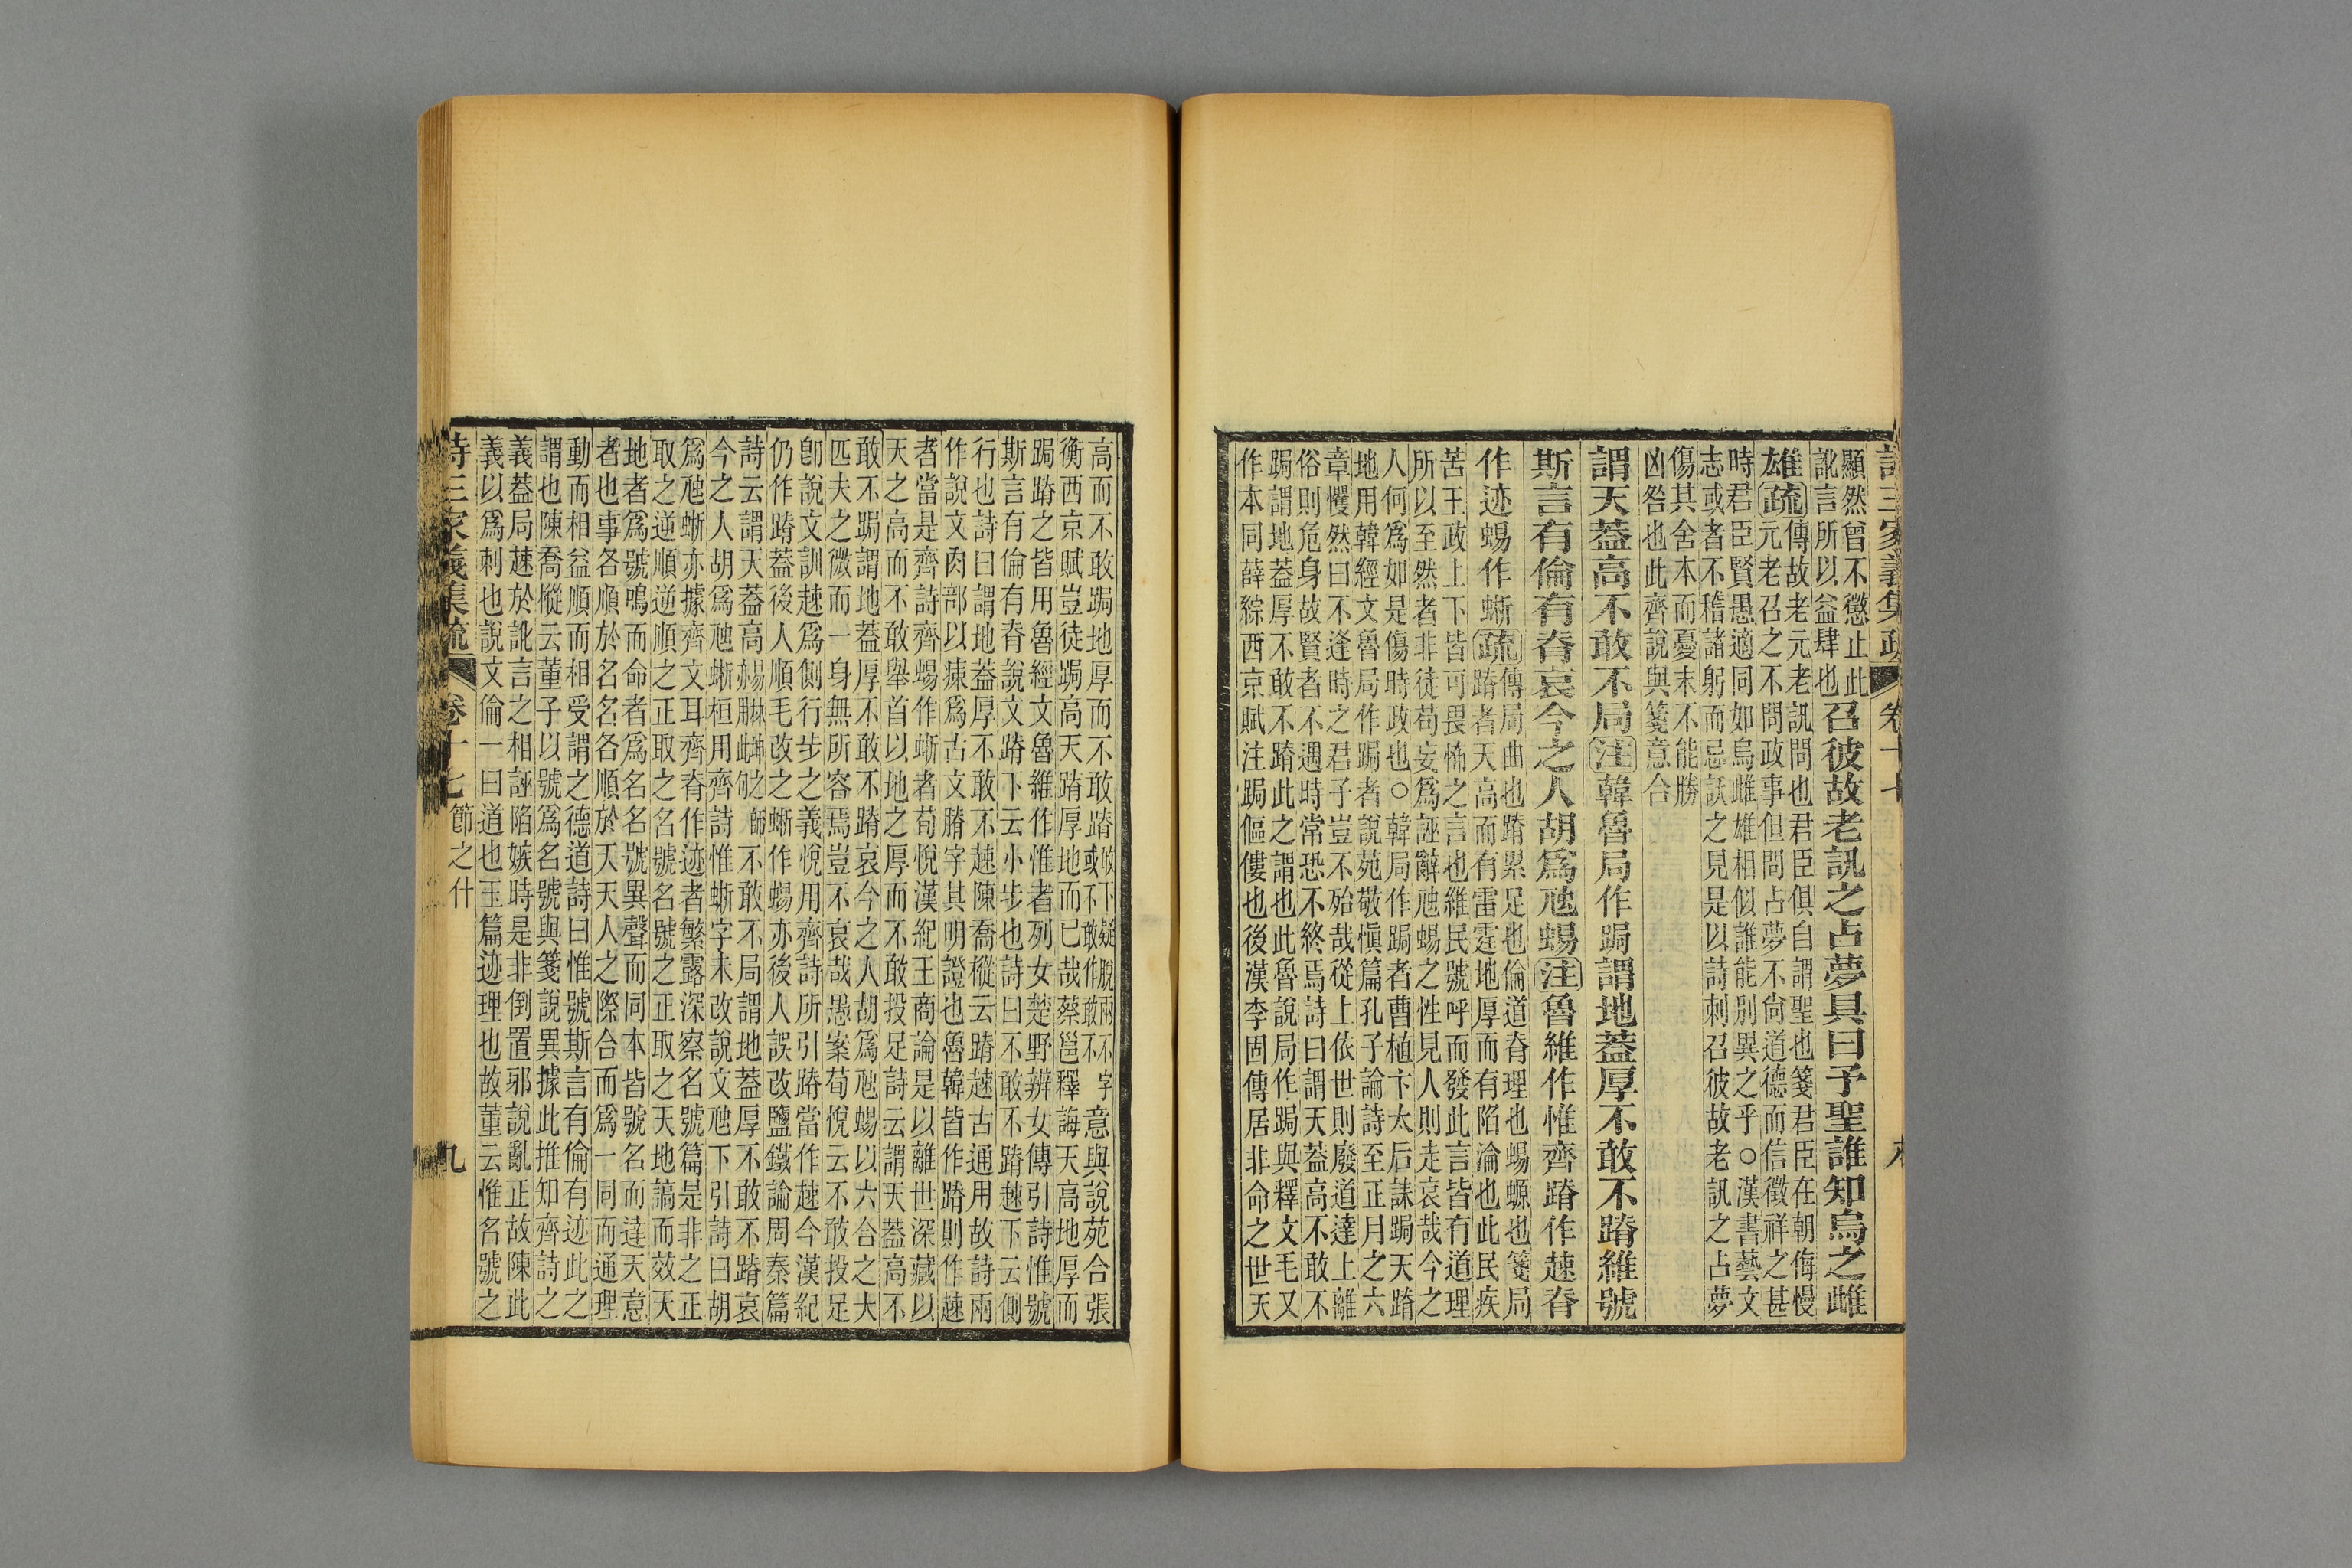 詩三家義集疏 卷十七
顯然曾不懲止此
訛言所以益肆也
召彼故老訊之占夢具曰予聖誰知烏之雌
雄疏
傳故老元老訊問也君臣俱自謂聖也箋君臣在朝侮慢
元老召之不問政事但問占夢不尙道德而信徵祥之甚
時君臣賢愚適同如烏雌雄相似誰能別異之乎○漢書藝文
志或者不稽諸躬而忌訞之見是以詩刺召彼故老訊之占夢
傷其舍本而憂末不能勝
凶咎也此齊說與箋意合
謂天蓋高不敢不局注韓魯局作跼謂地蓋厚不敢不蹐維號
斯言有倫有脊哀今之人胡爲虺蜴注魯維作惟齊蹐作趚脊
作迹蜴作蜥疏
傳局曲也蹐累足也倫道脊理也蜴螈也箋局
蹐者天高而有雷霆地厚而有陷淪也此民疾
苦王政上下皆可畏怖之言也維民號呼而發此言皆有道理
所以至然者非徒苟妄爲誣辭虺蜴之性見人則走哀哉今之
人何爲如是傷時政也○韓局作跼者曹植卞太后誄跼天蹐
地用韓經文魯局作跼者說苑敬愼篇孔子論詩至正月之六
章戄然曰不逢時之君子豈不殆哉從上依世則廢道違上離
俗則危身故賢者不遇時常恐不終焉詩曰謂天蓋高不敢不
跼謂地蓋厚不敢不蹐此之謂也此魯說局作跼與釋文毛又
作本同薛綜西京賦注跼傴僂也後漢李固傳居非命之世天
高而不敢跼地厚而不敢蹐敢下疑脫兩不字或不敢作敢不意與說苑合張
衡西京賦豈徒跼高天蹐厚地而已哉蔡邕釋誨天高地厚而
跼蹐之皆用魯經文魯維作惟者列女楚野辨女傳引詩惟號
斯言有倫有脊說文蹐下云小步也詩曰不敢不蹐趚下云側
行也詩曰謂地蓋厚不敢不趚陳喬樅云蹐趚古通用故詩兩
作說文肉部以㾊爲古文膌字其明證也魯韓皆作蹐則作趚
者當是齊詩齊蜴作蜥者荀悅漢紀王商論是以離世深藏以
天之高而不敢舉首以地之厚而不敢投足詩云謂天蓋高不
敢不跼謂地蓋厚不敢不蹐哀今之人胡爲虺蜴以六合之大
匹夫之微而一身無所容焉豈不哀哉愚案荀悅云不敢投足
卽說文訓趚爲側行步之義悅用齊詩所引蹐當作趚今漢紀
仍作蹐蓋後人順毛改之蜥作蜴亦後人誤改鹽鐵論周秦篇
詩云謂天蓋高不敢不局謂地蓋厚不敢不蹐哀
今之人胡爲虺蜥桓用齊詩惟蜥字未改說文虺下引詩曰胡
爲虺蜥亦據齊文耳齊脊作迹者繁露深察名號篇是非之正
取之逆順逆順之正取之名號名號之正取之天地天地
地者爲號鳴而命者爲名名號異聲而同本皆號名而達天意
者也事各順於名名各順於天天人之際合而爲一同而通理
動而相益順而相受謂之德道詩曰惟號斯言有倫有迹此之
謂也陳喬樅云董子以號爲名號與箋說異據此推知齊詩之
義蓋局趚於訛言之相誣陷嫉時是非倒置邪說亂正故陳此
義以爲刺也說文倫一曰道也玉篇迹理也故董云惟名號之
詩三家義集疏 卷十七 節之什 九